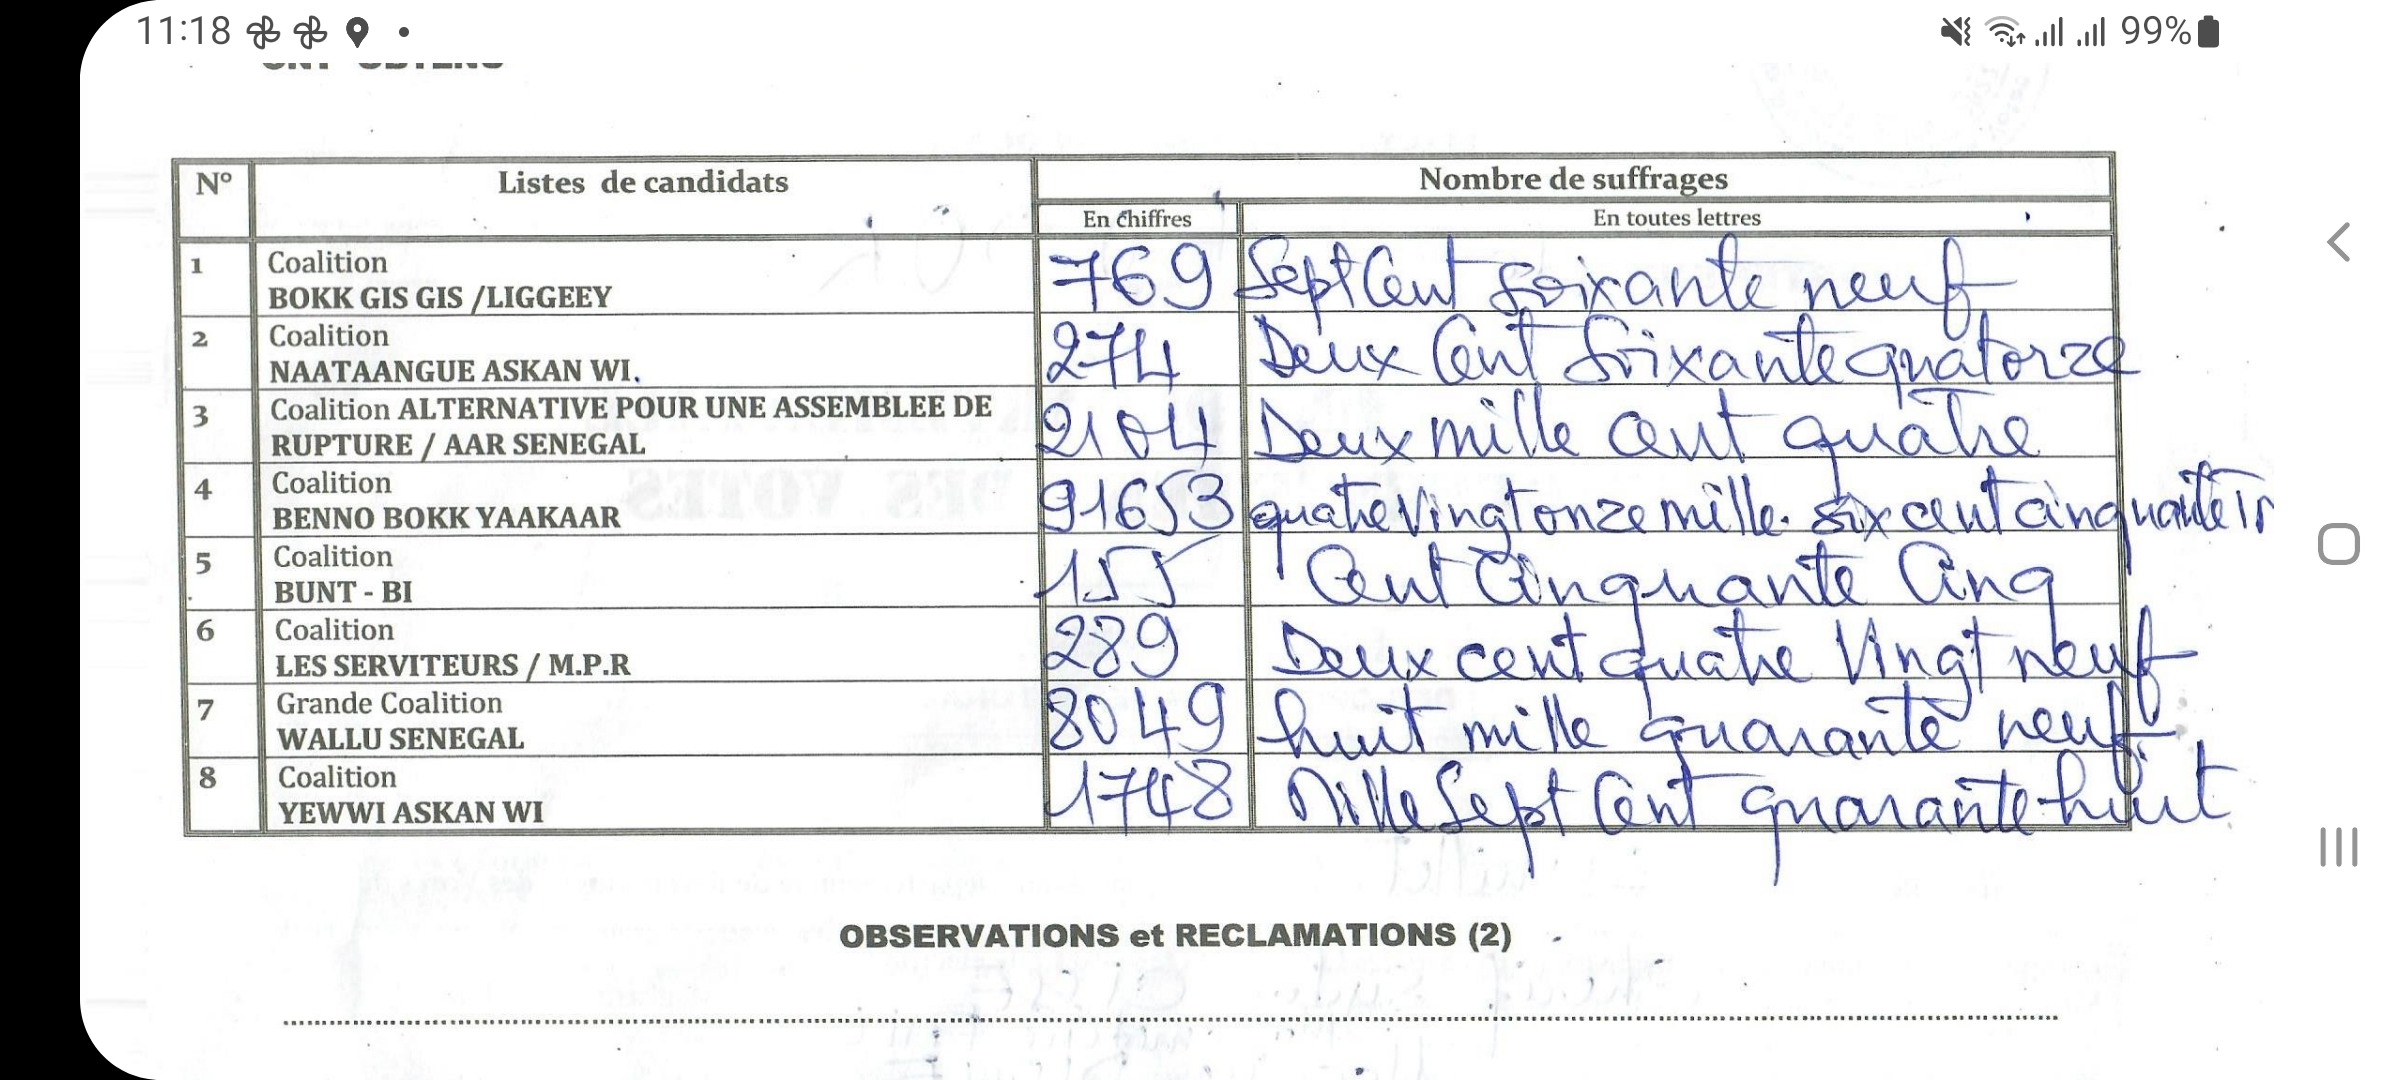 11:18 99%
ONT OBTENU
N° Listes de candidats Nombre de suffrages
En chiffres En toutes lettres
1 Coalition
BOKK GIS GIS /LIGGEEY 769 Sept Cent Soixante neuf
2 Coalition
NAATAANGUE ASKAN WI. 274 Deux Cent Soixante quatorze
3 Coalition ALTERNATIVE POUR UNE ASSEMBLEE DE
RUPTURE / AAR SENEGAL 2104 Deux mille cent quatre
4 Coalition
BENNO BOKK YAAKAAR 91653 quatre Vingt onze mille. six cent cinquante Tr
5 Coalition
BUNT - BI 155 Cent Cinquante Cinq
6 Coalition
LES SERVITEURS / M.P.R 289 Deux cent quatre Vingt neuf
7 Grande Coalition
WALLU SENEGAL 8049 huit mille quarante neuf
8 Coalition
YEWWI ASKAN WI 1748 Mille Sept Cent quarante huit
OBSERVATIONS et RECLAMATIONS (2)